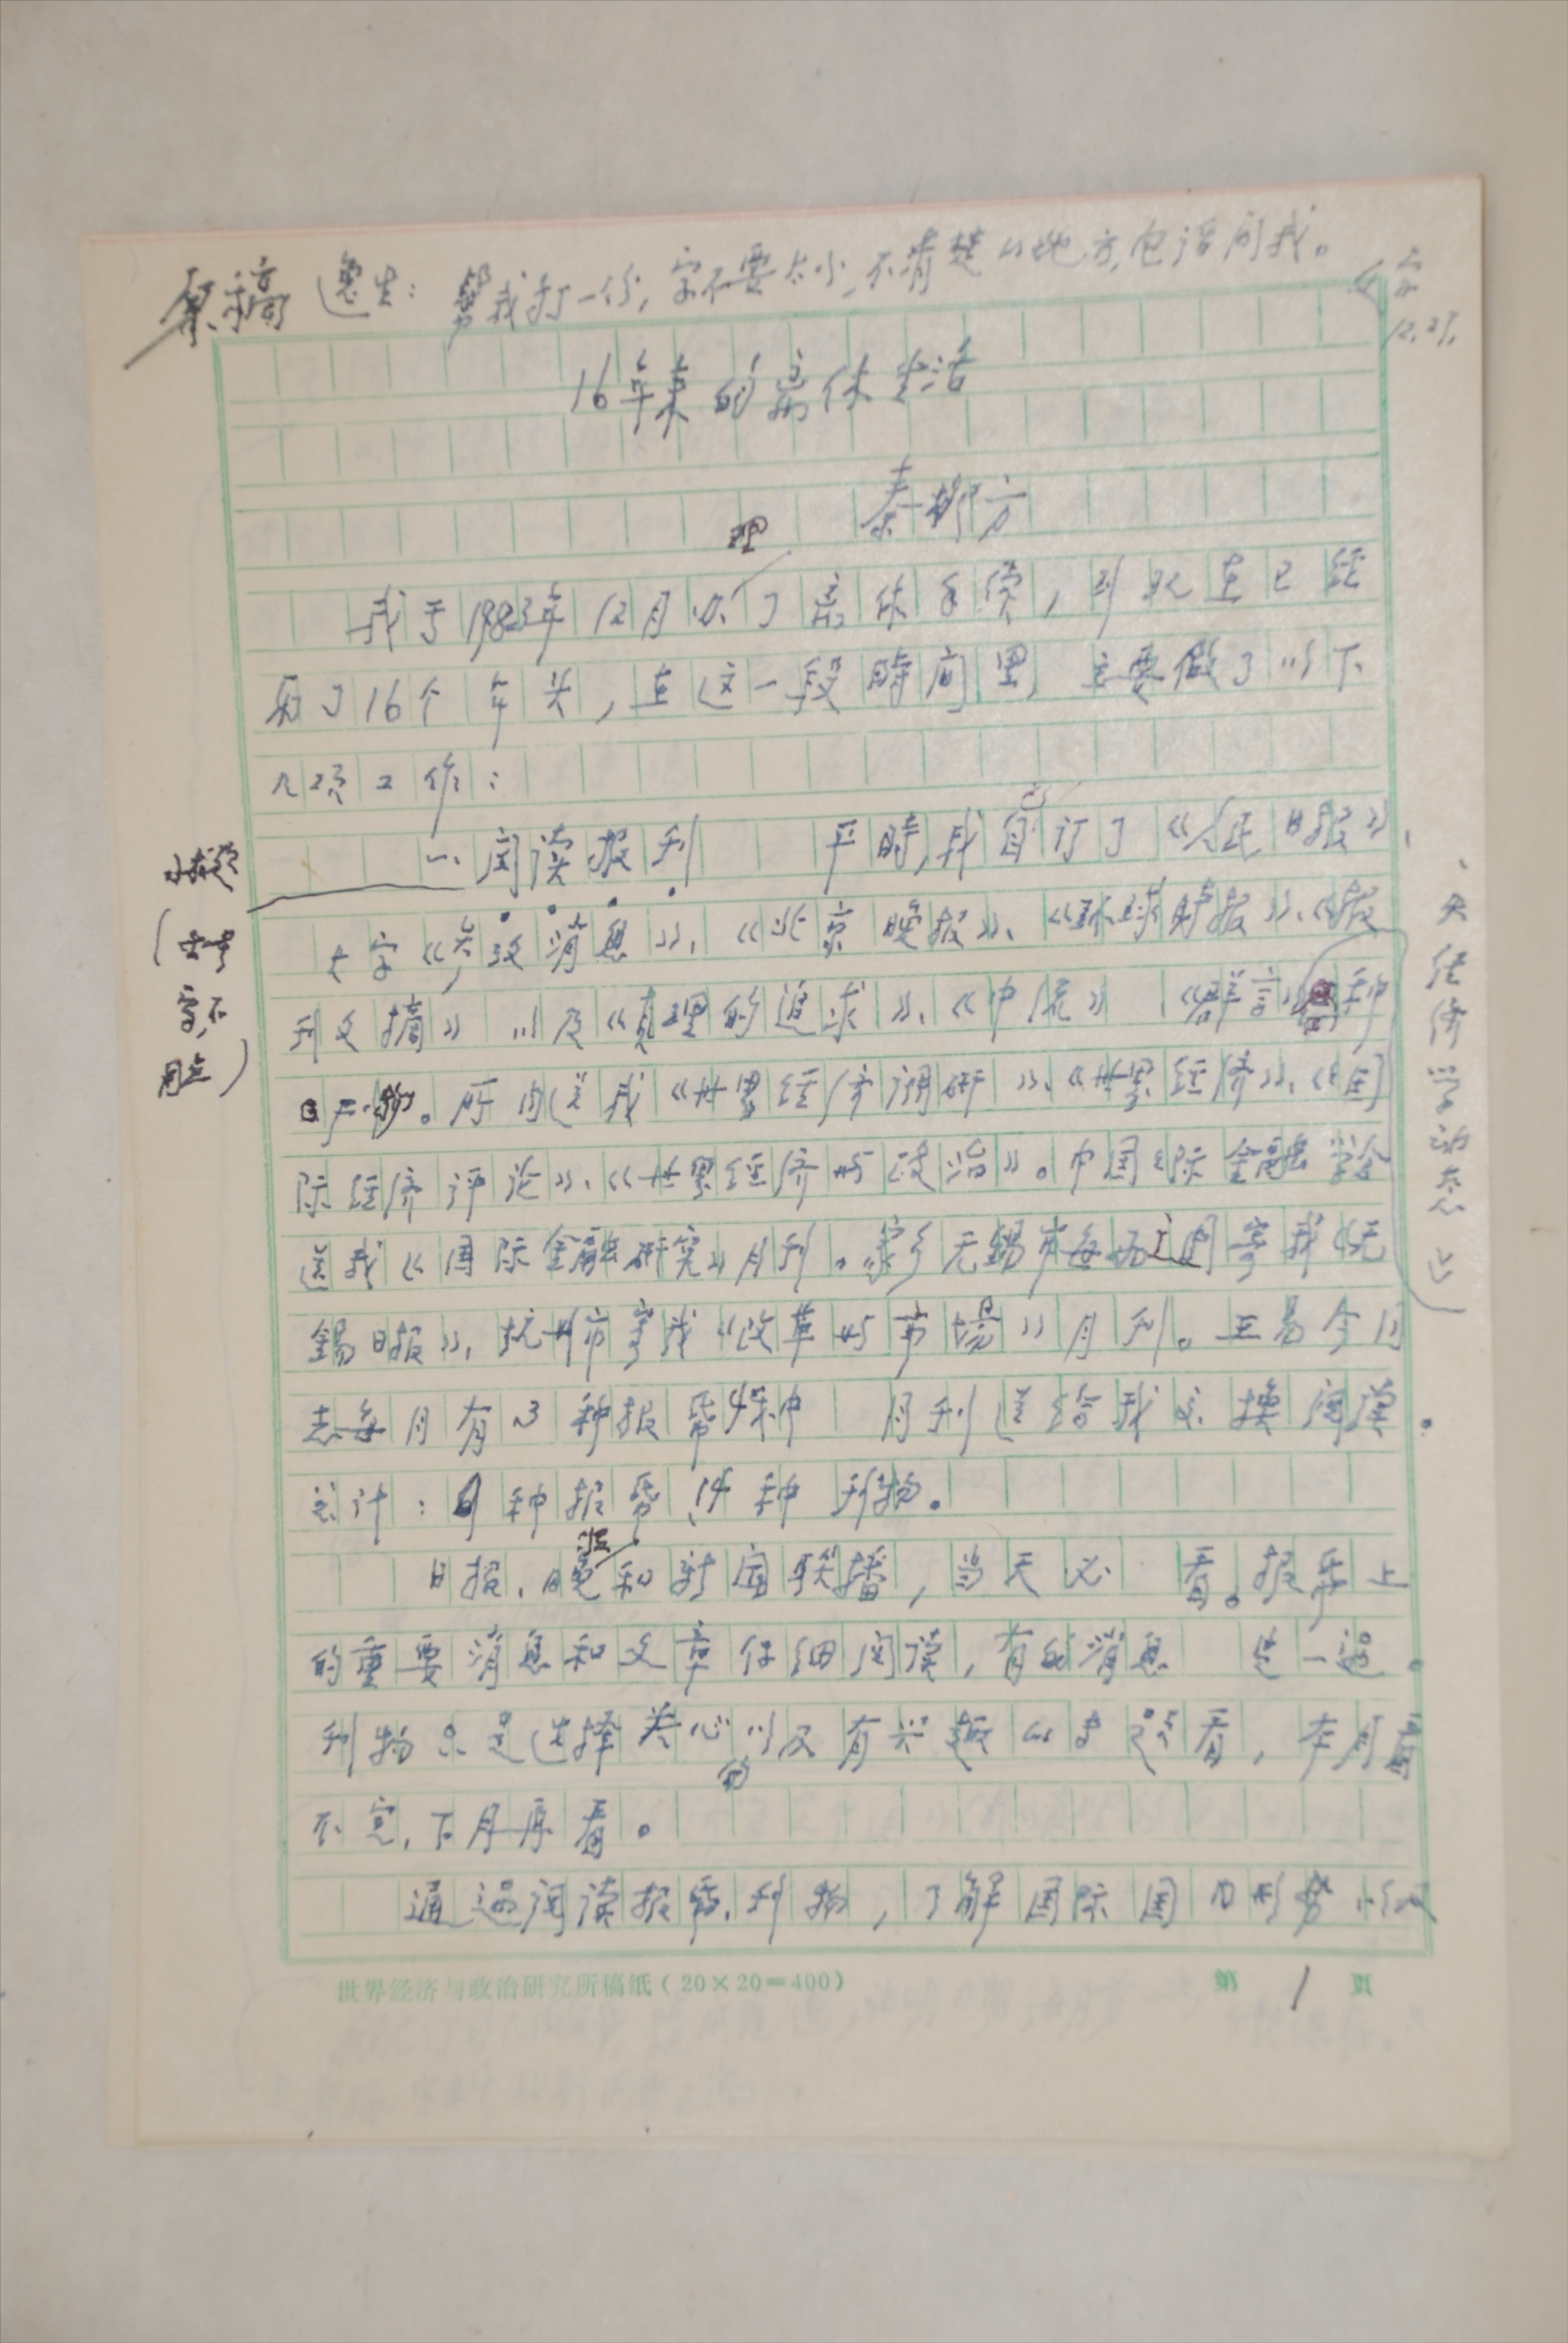 原稿
逸生：幫我打一份，字不要太小，不清楚的地方，电话问我。
12.27.
16年来的离休生活
秦柳方
我于1983年12月办理了离休手续，到现在已经
历了16个年头，在这一段時间里 主要做了以下
几项工作：
一、阅读报刊 平時，我自己订了《人民日报》、
大字《参攷消息》、《北京晚报》、《环球时报》、《报
刊文摘》 以及《真理的追求》、《中流》 《群言》 种
刊物。所内送我《世界经济调研》、《世界经济》、《国
际经济评论》、《世界经济与政治》。中国国际金融学会
送我《国际金融研究》月刊。家乡无锡市每 寄我《无
锡日报》、杭州市寄我《改革与市場》月刊。
志每月有3种报帋4种 月刊送给我交换阅读。
总计： 种报帋、14种 刊物。
日报、晚报和新闻联播，当天必 看。报帋上
的重要消息和文章仔细阅读，有的消息 一过。
刊物只是选择关心的以及有兴趣的专题看，本月看
不完，下月再看。
通过阅读报帋、刊物，了解国际国内形势
小标题
（五号
字，不
用点）
、《经济学动态》
世界经济与政治研究所稿纸（20×20=400）
第 1 页